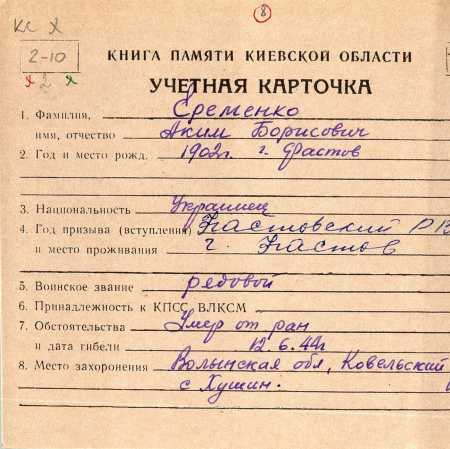 8
КС Я
2-10
я 2 я
КНИГА ПАМЯТИ КИЕВСКОЙ ОБЛАСТИ
УЧЕТНАЯ КАРТОЧКА
1. Фамилия, Еременко
имя, отчество Аким Борисович
2. Год и место рожд. 1902г. г. Фастов
3. Национальность Украинец
4. Год призыва (вступления) Фастовский РВ
и место проживания г. Фастов
5. Воинское звание редовой
6. Принадлежность к КПСС ВЛКСМ
7. Обстоятельства Умер от ран
и дата гибели 12.6.44г
8. Место захоронения Волынская обл, Ковельский
с Хушин.